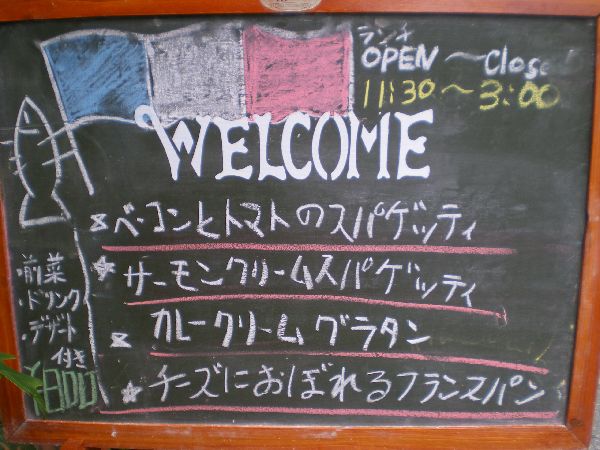 ランチ
OPEN 〜 Close
11:30 〜 3:00
WELCOME
ベーコンとトマトのスパゲッティ
サーモンクリームスパゲッティ
カレークリームグラタン
チーズにおぼれるフランスパン
・前菜
・ドリンク
・デザート
付き
800